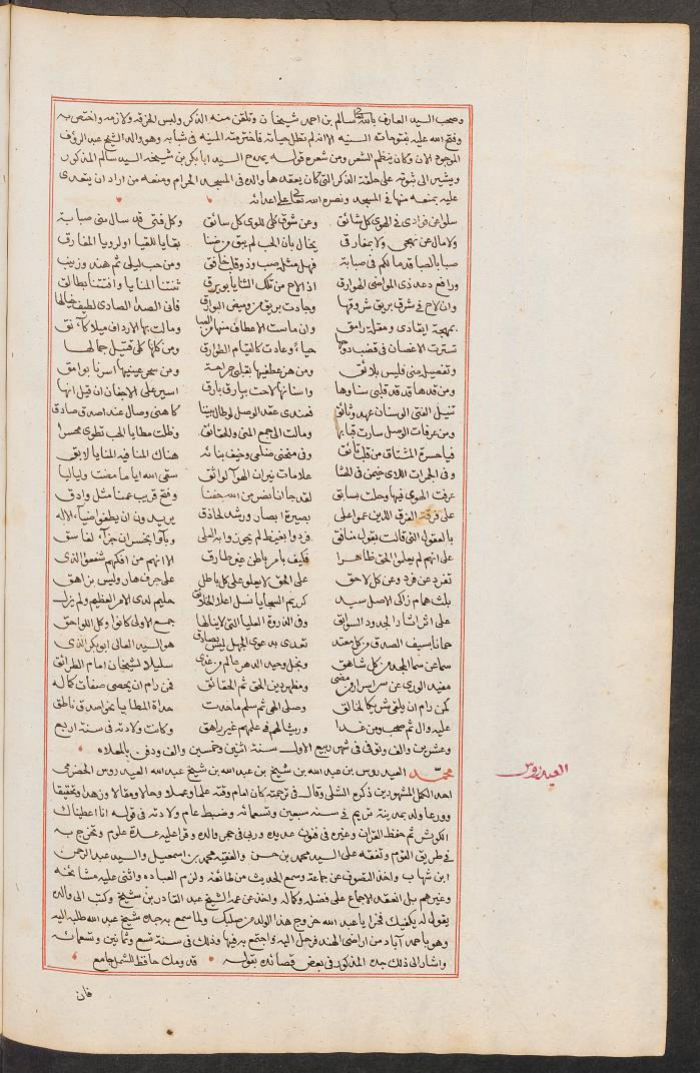 وصحب السيد العارف بالله سالم بن احمد شيخان وتلقن منه الذكر ولبس الخرقة ولازمه واختص به
وفتح الله عليه بفتوحاته السنيه الا انه لم تطل حياته فاخترمته المنيه في شبابه وهو والد الشيخ عبد الرؤف
الموجود الآن وكان ينظم الشعر ومن شعره قوله يمدح السيد ابا بكر بن شيخه السيد سالم المذكور
ويشير الى ثبوته على حلقة الذكر التي كان يعقدها والده في المسجد الحرام ومنعه من اراد ان يتعدى
عليه بمنعه منها في المسجد ونصره الله تعالى على اعدائه
سلوا عن فؤادي في الهوى كل شائق وعن شوق كلي للوى كل سائق وكل فتى قد سال مني صبابة
ولا مال عن نهجي ولا بمفارق يخال بان الحب لم يبق بقايا للقيا اولرويا المفارق
صبا بالصبا قدما لكم في صبابة فهل مثل صب وذو قلب خافق ومن حب ليلى ثم هند وزينب
ورافع دعد ذي المواضى الهوارق اذ الاح من تلك الثنايا بويرق ثنتنا المنايا وافتتنا بطالق
وان لاح في شرق بريق شروقها وجادت بريق من وميض البوارق فاني الصد الصادي لطيف خيالها
بمهجة ايقادي ومقلة رامق وان ماست الاعطاف منها ومالت بها الارداف ميلا كآ نق
تسترت الاغصان في قضب دوحها حياء وعادت كالقيام الطوارق ومن كلها كلي قتيل جمالها
وتفصيل مني فليس بلائق ومن هز عطفيها بقلبي جراحة ومن سحر عينيها اسرنا بوامق
ومن قدها قد قد قلبي سناوها واسنانها لاحت ببارق بارق اسير على الاجفان ان قيل انها
تنيل الفتى الوسنان عهد وثائق فعندي عقد الوصل لوطال بيننا كاهني وصال عند اصدق صادق
ومن عرفات الوصل سارت قبابها ومالت الى جمع المنى والحقائق وظلت مطايا الحب تطوى محسرا
فيا حسرة المشتاق من قلب تائق وفي منحنى ضلعي وخيف بنائه هناك المنا فيه المنايا لابق
وفي الجمرات اللاي خيمن في الحشا علامات نيران الهوآ لوائق سقى الله اياما مضت ولياليا
عرفت الهوى فيها وحلت بسابق لقد جآنا نصر من الله حفنا وفتح قريب عمنا مثل وادق
على فرقة الفرق الذين عموا على بصيرة ابصار ورشد لحاذق يريدون ان يطفوا ضيآء الاله
بالعقول التي قالت بقول منافق فردوا بغيظ لم يحوزوا به الملى وبآؤا بخسران جزآء لفاسق
على انهم لم يعلوا الحق ظاهرا فكيف بامر باطن فوق طارق الا انهم من افكهم شنعوا الذي
تفرد عن فرد وعن كل لاحق على الحق لا يعلو على كل باطل على جرف هار وليس بزاهق
بلث همام زاكى الاصل سيد كريم السجايا نسل اعلا الخلائق حليم لدى الامر العظيم ولم يزل
على اثر اثار الجدود السوابق وفي الذروة العليا التي لا ينالها جمع الاولى كانوا وكل اللواحق
حمانا بسيف الصدق من كل معتد تعدى بدعوى الجهل ليس بصادق هو السيد العالي ابو بكر الذي
سما عن سما المجد من كل شاهق ونجل وحيد الدهر عالم سليلا لشيخان امام الطرائق
مفيد الورى عن سر اسرار ومظهر دين الحق ثم الحقائق فمن رام ان يحصى صفات كماله
كمن رام ان يلقى شريكا لخالق وصلى الهي ثم سلم ما حدت حداة المطايا نحو اصدق ناطق
عليه وآل ثم صحب ومن غدا وريثا لهم في علمهم غير راهق وكانت ولادته في سنة اربع
وعشرين والف وتوفي في شهر ربيع الاول سنة اثنين وخمسين والف ودفن بالمعلاه
محمد العيدروس بن عبد الله بن شيخ بن عبد الله بن شيخ عبد الله العيدروس الحضرمي
العيدروس
احد الكمل المشهورين ذكره الشلي وقال في ترجمته كان امام وقته علما وعملا وحالا ومقالا وزهدا وتحقيقا
وورعا ولد بمدينة تريم في سنة سبعين وتسعمائة وضبط عام ولادته في قوله انا اعطيناك
الكوثر ثم حفظ القران وغيره في فنون عديده وربى في حجر والده وقرا عليه عدة علوم وتخرج به
في طريق القوم وتفقه على السيد محمد بن حسن والفقيه محمد بن اسمعيل والسيد عبد الرحمن
ابن شهاب واخذ التصوف عن جماعة وسمع الحديث من طائفة ولزم العباده واثنى عليه مشايخنه
وغيرهم بل انعقد الاجماع على فضله وكماله واخذ عن عمه الشيخ عبد القادر بن شيخ وكتب الى والده
يقول له يكفيك فخرا يا عبد الله خروج هذا الولد من صلبك ولما سمع به جده شيخ عبد الله طلبه اليه
وهو باحمد آباد من اراضي الهند فرحل اليه واجتمع به فيها وذلك في سنة تسع وثمانين وتسعمائة
واشار الى ذلك جده المذكور في بعض قصائده بقوله قد ومك حافظ للشمل جامع
فان